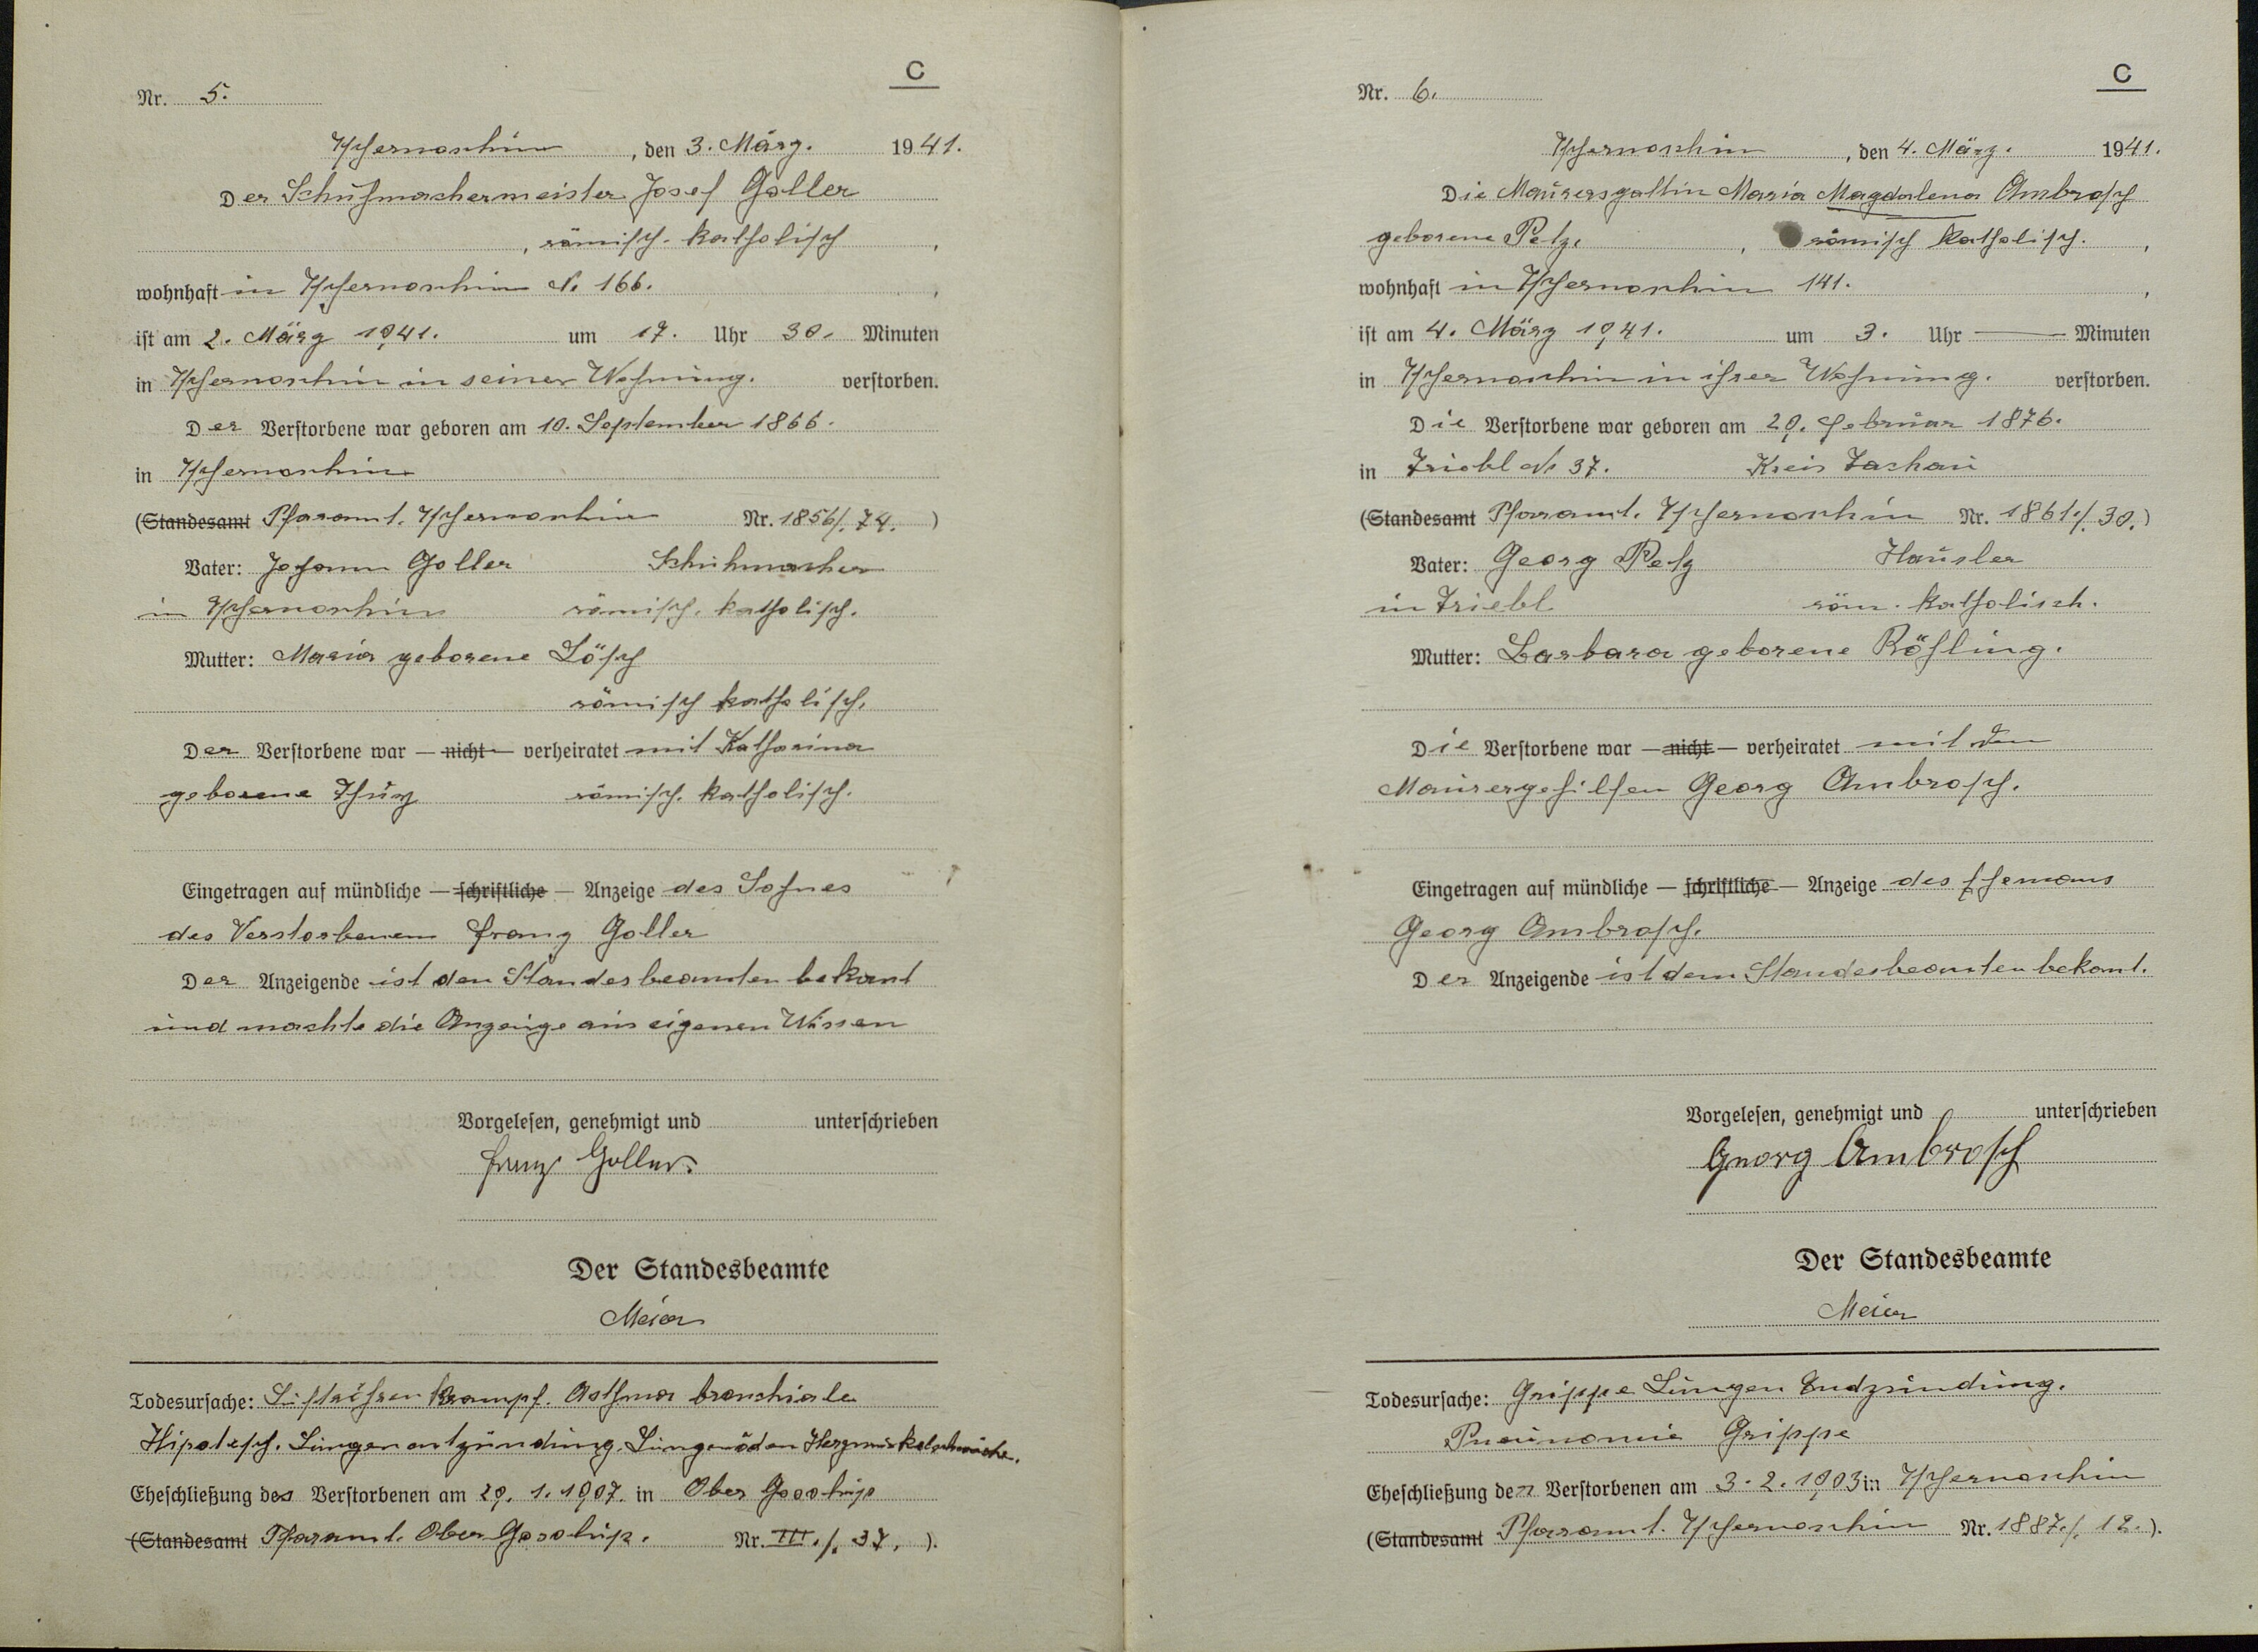 C
Nr. 5.
Tschernoschin, den 3. März. 1941.
Der Schuhmachermeister Josef Goller
, römisch. katholisch,
wohnhaft in Tschernoschin N. 166.,
ist am 2. März 1941. um 17. Uhr 30. Minuten
in Tschernoschin in seiner Wohnung. verstorben.
Der Verstorbene war geboren am 10. September 1866.
in Tschernoschin
(Standesamt Pfaramt. Tschernoschin Nr. 1856/. 74. )
Vater: Johann Goller Schuhmacher
in Tschernoschin römisch. katholisch.
Mutter: Maria geborene Lösch
römisch katholisch.
Der Verstorbene war — nicht — verheiratet mit Katharina
geborene römisch. katholisch.
Eingetragen auf mündliche — schriftliche — Anzeige des Sohnes
des Verstorbenen Franz Goller
Der Anzeigende ist den Standesbeamten bekant
und machte die Anzeige aus eigenen Wissen
Vorgelesen, genehmigt und unterschrieben
Franz Goller.
Der Standesbeamte
Meier
Todesursache: Luftröhren Krampf. Asthma bronchiale
Lungenentzündung. Herzmuskelschwäche.
Eheschließung des Verstorbenen am 29. 1. 1907. in Ober
(Standesamt Pfaramt. Ober Nr. III./. 37. ).
C
Nr. 6.
Tschernoschin, den 4. März. 1941.
Die Maurersgattin Maria Magdalena Ambrosch
geborene Pelz, , römisch katholisch. ,
wohnhaft in Tschernoschin 141. ,
ist am 4. März 1941. um 3. Uhr — Minuten
in Tschernoschin in ihrer Wohnung. verstorben.
Die Verstorbene war geboren am 29. Februar 1876.
in Triebl N. 37. Kreis Tachau
(Standesamt Pfaramt. Tschernoschin Nr. 1861./. 30.)
Vater: Georg Pelz Häusler
in Triebl röm. katholisch.
Mutter: Barbara geborene Rößling.
Die Verstorbene war — nicht — verheiratet mit den
Maurergehilfen Georg Ambrosch.
Eingetragen auf mündliche — schriftliche — Anzeige des Ehemans
Georg Ambrosch.
Der Anzeigende ist dem Standesbeamten bekant.
Vorgelesen, genehmigt und unterschrieben
Georg Ambrosch
Der Standesbeamte
Meier
Todesursache: Grippe Lungen Endzündung.
Pneunomie Grippe
Eheschließung der Verstorbenen am 3. 2. 1903 in Tschernoschin
(Standesamt Pfaramt. Tschernoschin Nr. 1887./. 12. ).